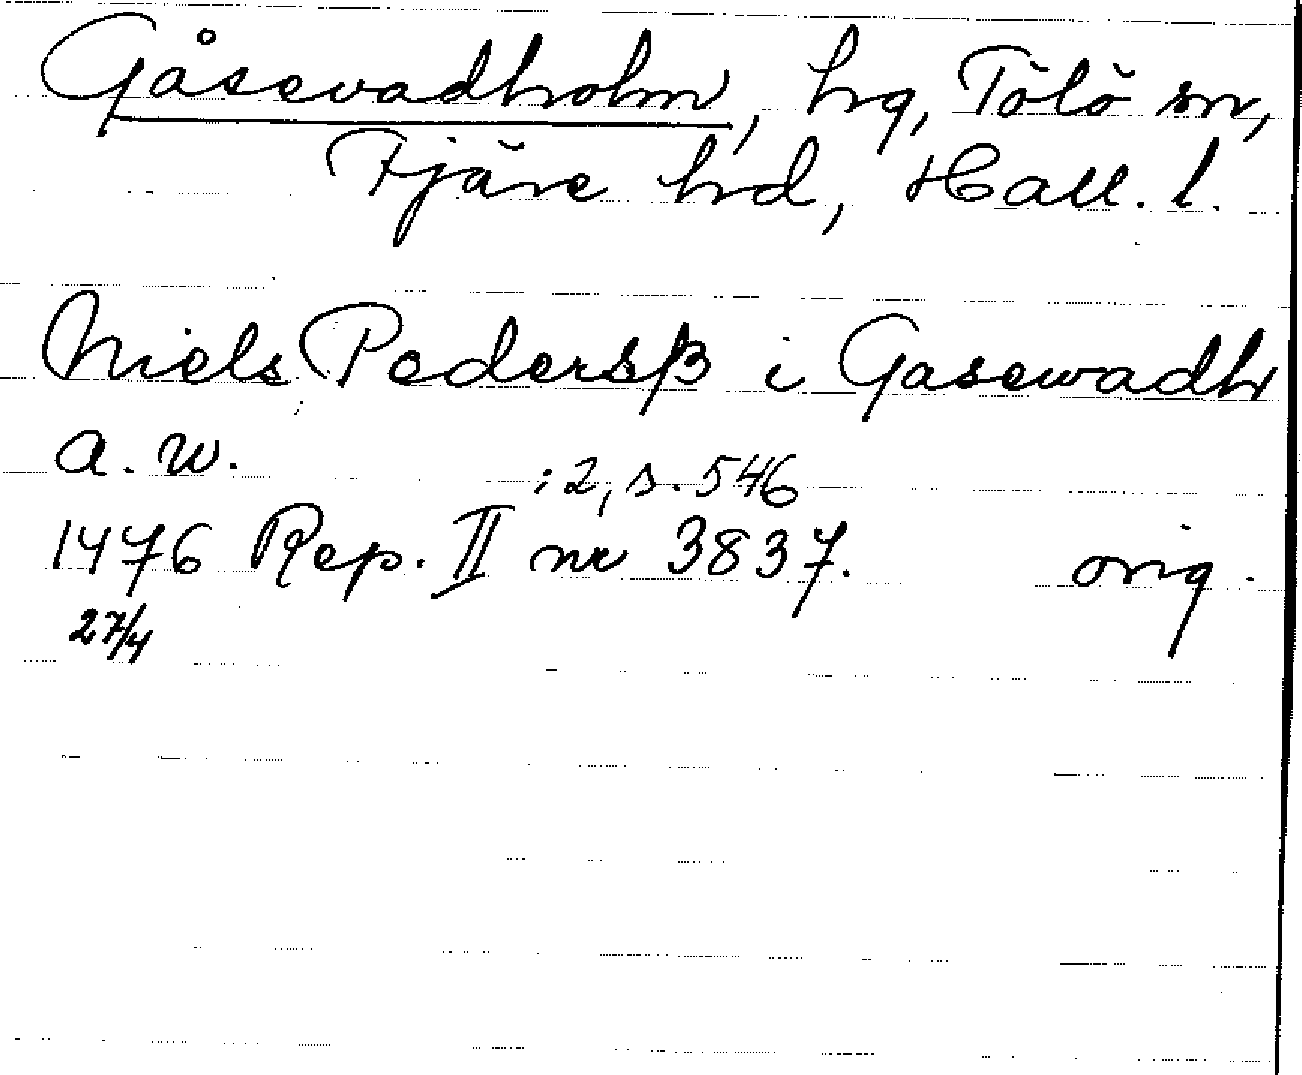 Gåsevadholm, hrg, Tölö sn,
Fjäre hrd, Hall. l.
Niels Pedersß i Gasewadh
a. w.
:2, s. 546
1476 Rep. II nr 3837. orig.
27/4